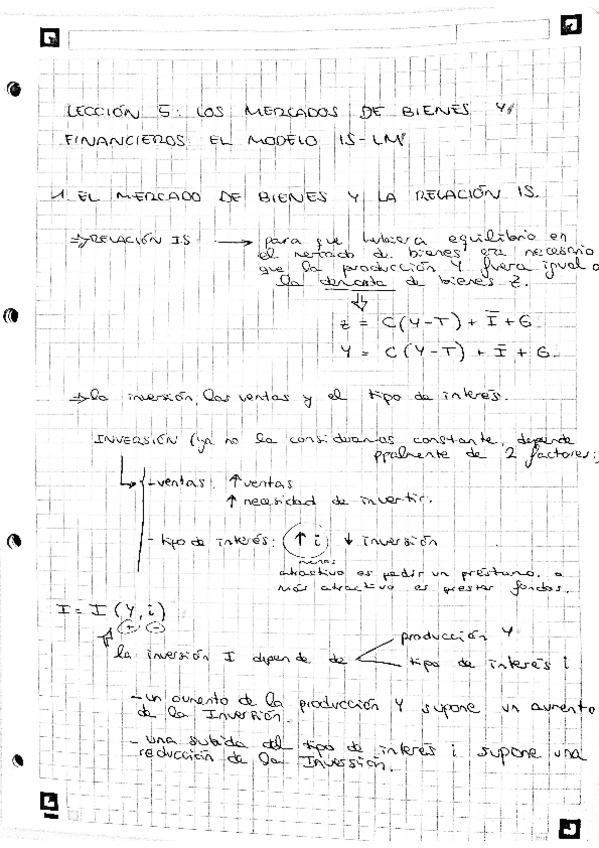 LECCIÓN 5: LOS MERCADOS DE BIENES Y
FINANCIEROS EL MODELO IS-LM
1. EL MERCADO DE BIENES Y LA RELACIÓN IS.
⇒ RELACIÓN IS → para que hubiera equilibrio en
el mercado de bienes era necesario
que la producción Y fuera igual a
la demanda de bienes Z.
Z = C(Y-T) + Ī + G
Y = C(Y-T) + Ī + G
⇒ la inversión, las ventas y el tipo de interés.
INVERSIÓN (ya no la consideramos constante, depende
ppalmente de 2 factores:
-ventas: ↑ ventas
↑ necesidad de invertir.
- tipo de interés: ↑ i ↓ inversión
menos
atractivo es pedir un préstamo. o
más atractivo es prestar fondos.
I = I (Y, i)
(+) (-)
la inversión I depende de
producción Y
tipo de interés i
- un aumento de la producción Y supone un aumento
de la Inversión.
- una subida del tipo de interés i supone una
reducción de la Inversión.